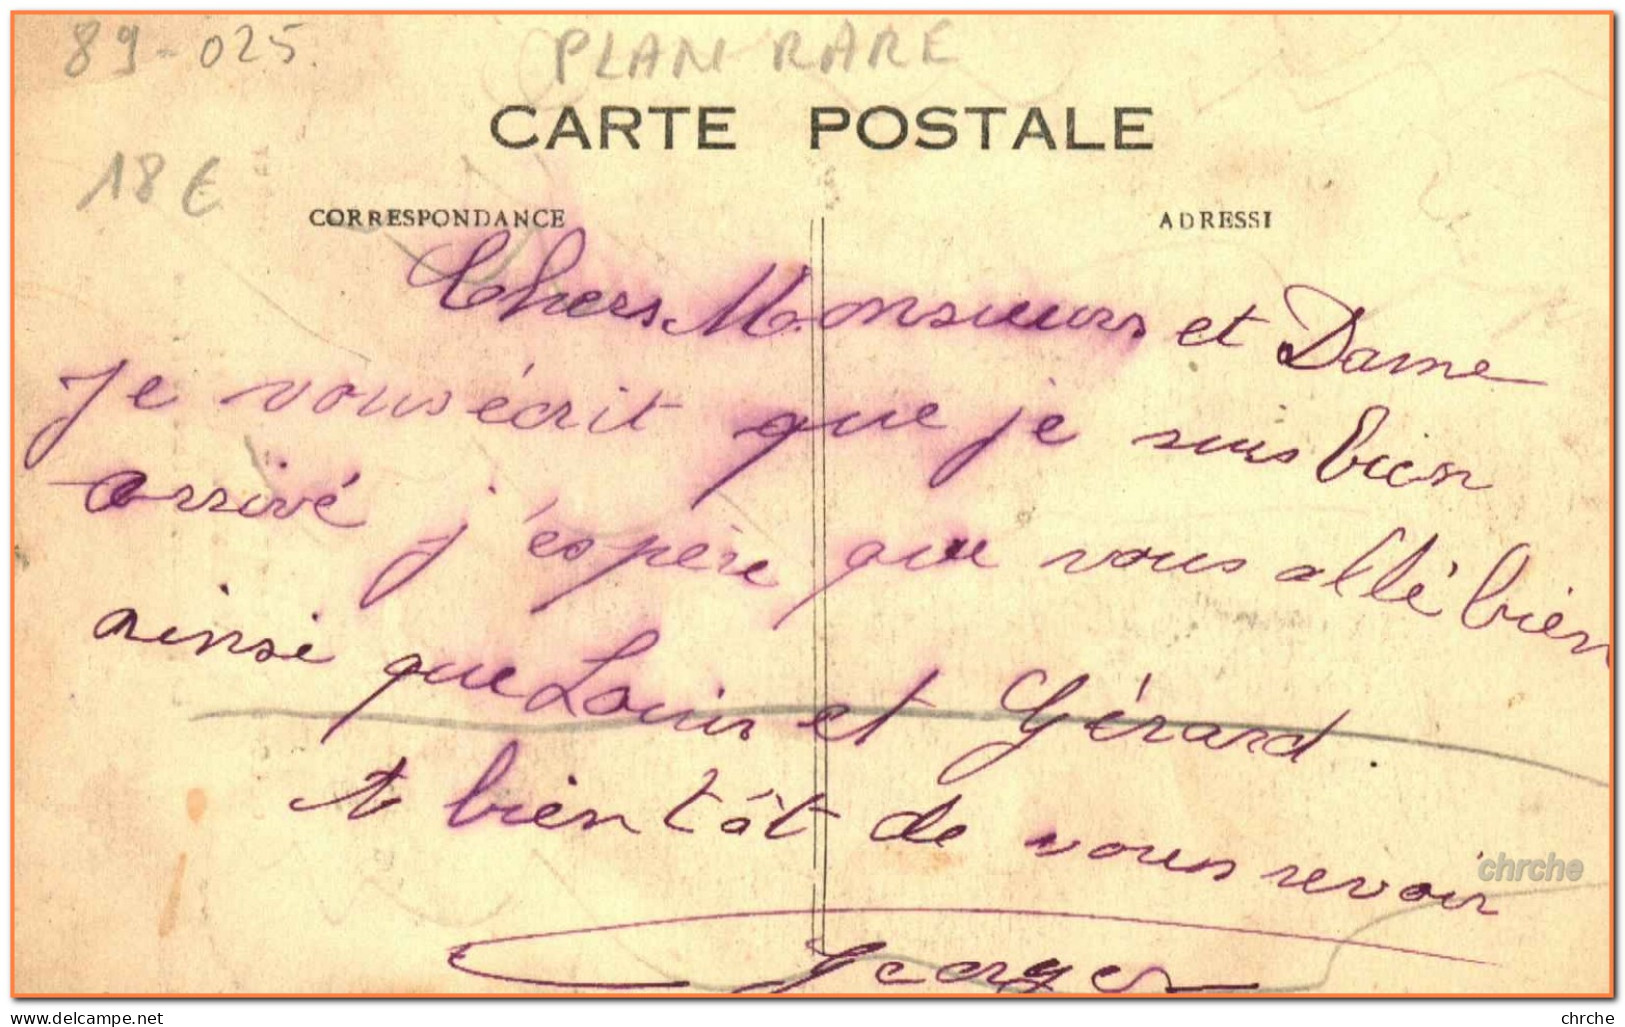 89-025.
PLAN RARE
CARTE POSTALE
18 €
CORRESPONDANCE
ADRESSE
Chers Monsieurs et Dame
je vous écrit que je suis bien
arrivé j'espère que vous allé bien
ainsi que Louis et Gérard.
A bientôt de vous revoir
chrche
Georges
www.delcampe.net
chrche